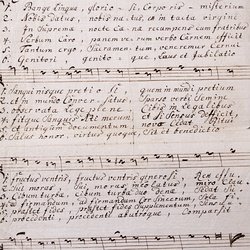 1. Pange lingua, glorio- si, Corpo ris - misterium
2. Nobis datus, nobis natus, ex in tacta virgine
3. In Suprema nocte Cae na recumbens cum fratribus
4. Verbum Caro, panem verum verbo Carnem efficit
5. Tantum ergo, Sacramen- tum, veneremur Cernui
6. Genitori genito - que, Laus et Jubilatio
Sanguinisque pretio si quem in mundi pretium
et in mundo Conver - satus, Sparso verbi Semine
observata Lege plene Cibis in Legalibus
fitque Sanguis Xti merum, et si Sensus deficit,
et antiquum documentum
Salus honor, virtus quoque Sit et benedictio
fructus ventris, fructus ventris generosi
Sui moras Sui, moras incolatus, miro
Cibum turbae, Cibum turbae duo denae
ad firmandum, ad firmandum Cor sincerum, Sola fi
praestet fides, praestet fides Supplementum,
procedenti, procedenti abutroque, Compar sit